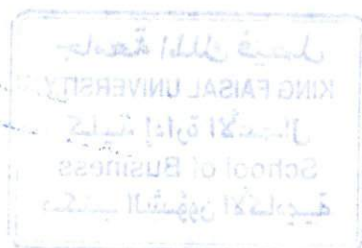 جامعة الملك فيصل
KING FAISAL UNIVERSITY
كلية إدارة الأعمال
School of Business
مكتب الشؤون الأكاديمية